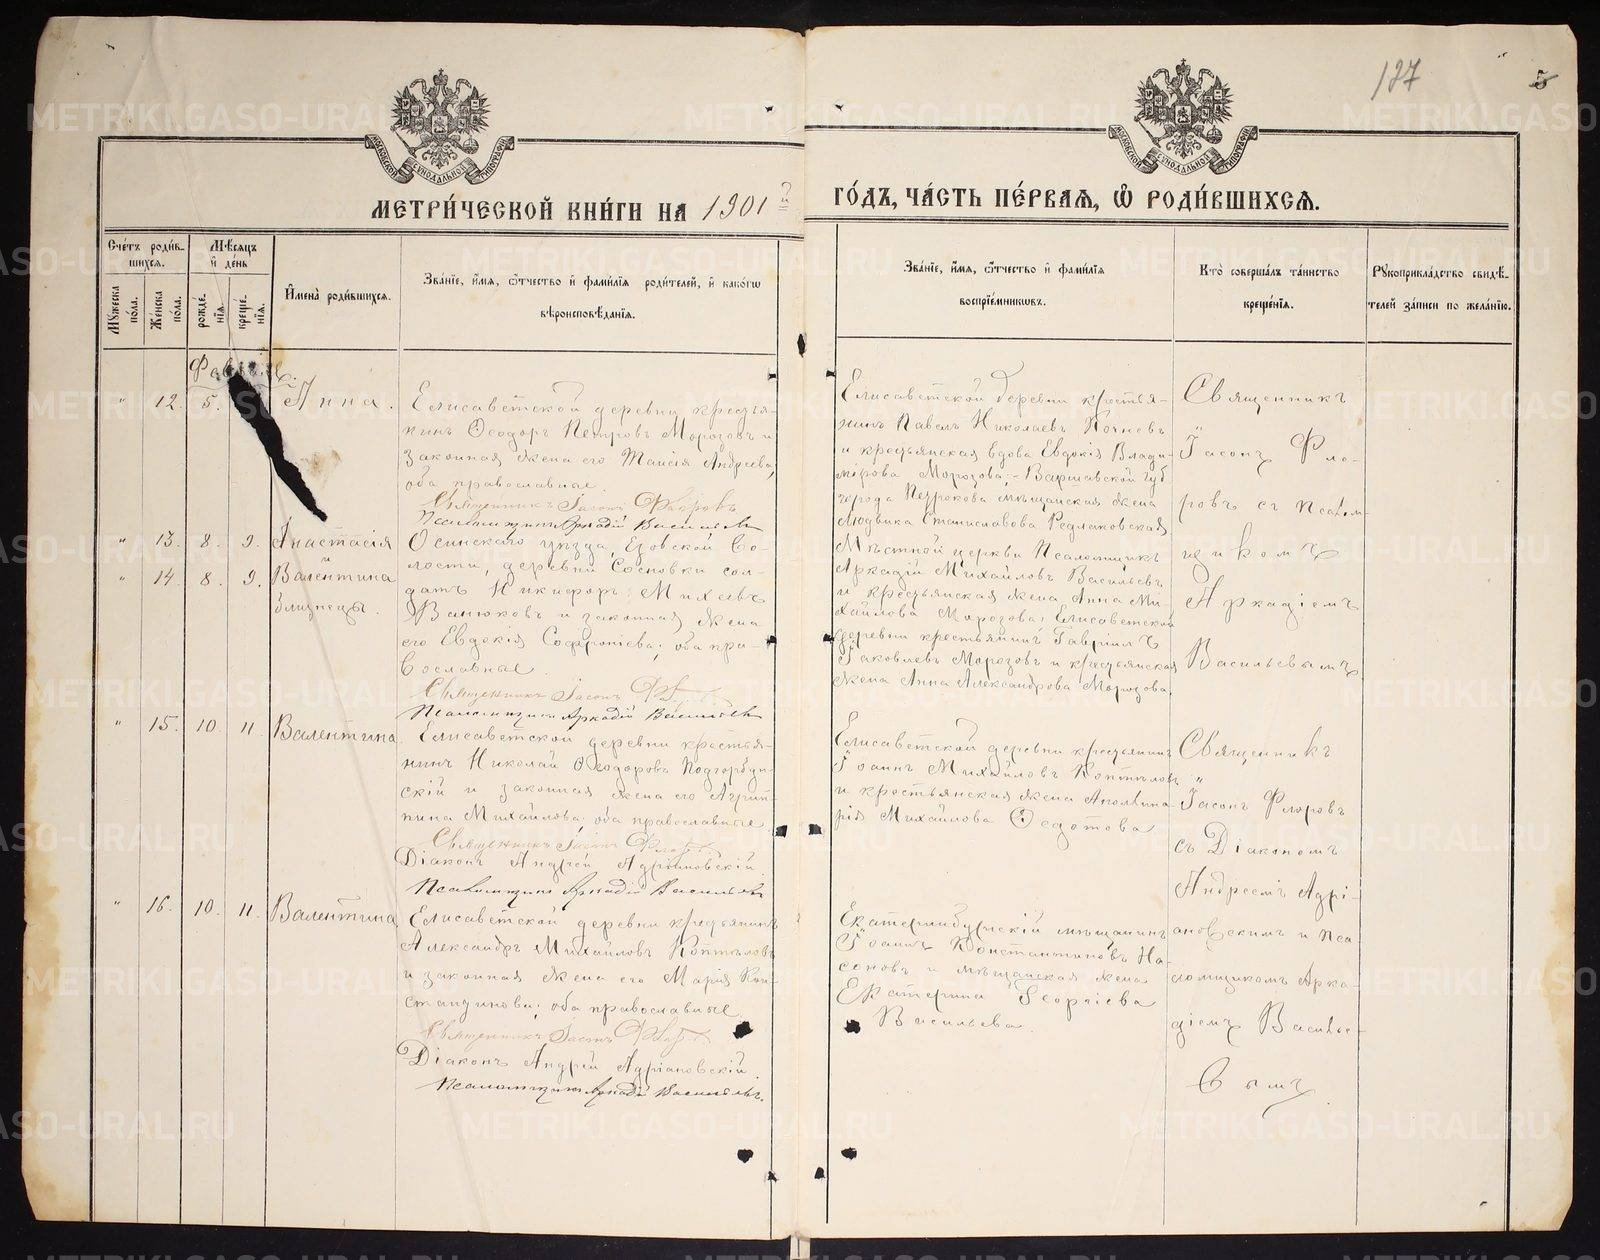 127
5
МОСКОВСКОЙ СѴНОДАЛЬНОЙ ТИПОГРАФІИ
МОСКОВСКОЙ СѴНОДАЛЬНОЙ ТИПОГРАФІИ
МЕТРИ́ЧЕСКОЙ КНИ́ГИ НА 1901 й
ГО́ДЪ, ЧА́СТЬ ПЕ́РВАѦ, Ѡ҆ РОДИ́ВШИХСѦ.
Сче́тъ роди́в-
шихсѧ.
Мꙋ́жеска по́ла.
Же́нска по́ла.
Мѣ́сѧцъ
и҆ де́нь
рожде́-
нїѧ.
креще́-
нїѧ.
И҆мена̀ роди́вшихсѧ.
Зва́нїе, и҆́мѧ, ѻ҆́тчество и҆ фами́лїѧ роди́телей, и҆ како́гѡ
вѣроисповѣ́данїѧ.
Зва́нїе, и҆́мѧ, ѻ҆́тчество и҆ фами́лїѧ
воспрїе́мникѡвъ.
Кто̀ соверша́лъ та́инство
креще́нїѧ.
Рꙋкоприкла́дство свидѣ́-
телей за́писи по жела́нїю.
" 12. 5. Анна.
Елисаветской деревни крестья-
нинъ Ѳеодоръ Петровъ Морозовъ и
законная жена его Таисія Андреева,
оба православные.
Священникъ Іасонъ Флоровъ
Псаломщикъ Аркадій Васильевъ
Елисаветской деревни крестья-
нинъ Павелъ Николаевъ
и крестьянская вдова Евдокія Влади-
мірова Морозова; Варшавской губ
города Петрокова мѣщанская жена
Людвика Станиславова
Священникъ
Іасонъ Фло-
ровъ съ псалом-
щикомъ
Аркадіемъ
Васильевымъ
" 13. 8. 9. Анастасія
и
" 14. 8. 9. Валентина
близнецы.
Осинскаго уѣзда, Ѣзовской во-
лости, деревни Сосновки сол-
датъ Никифоръ Михеевъ
Ванюковъ и законная жена
его Евдокія Софроніева; оба пра-
вославные
Священникъ Іасонъ
Псаломщикъ Аркадій Васильевъ
Мѣстной церкви псаломщикъ
Аркадій Михайловъ Васильевъ
и крестьянская жена Анна Ми-
хайлова Морозова; Елисаветской
деревни крестьянинъ Гавріилъ
Іаковлевъ Морозовъ и крестьянская
жена Анна Александрова Морозова.
" 15. 10 11. Валентина
Елисаветской деревни крестья-
нинъ Николай Ѳеодоровъ Подгорбун-
скій и законная жена его Агрип-
пина Михайлова; оба православные
Священникъ Іасонъ
Діаконъ Андрей Адріановскій.
Псаломщикъ Аркадій Васильевъ
Елисаветской деревни крестьянинъ
Іоаннъ Михайловъ Коптѣловъ
и крестьянская жена Аполлина-
рія Михайлова Ѳедотова
Священникъ
Іасонъ Флоровъ
съ Діакономъ
Андреемъ Адрі-
ановскимъ и пса
ломщикомъ Арка-
діемъ Василье-
вымъ
" 16. 10. 11. Валентина
Елисаветской деревни крестьянинъ
Александръ Михайловъ Коптѣловъ
и законная жена его Марія Кон-
стантинова; оба православные
Священникъ Іасонъ
Діаконъ Андрей Адріановскій.
Псаломщикъ Аркадій Васильевъ.
Екатеринбургскій мѣщанинъ
Іоаннъ Константиновъ На-
соновъ и мѣщанская жена
Екатерина Георгіева
Васильева.